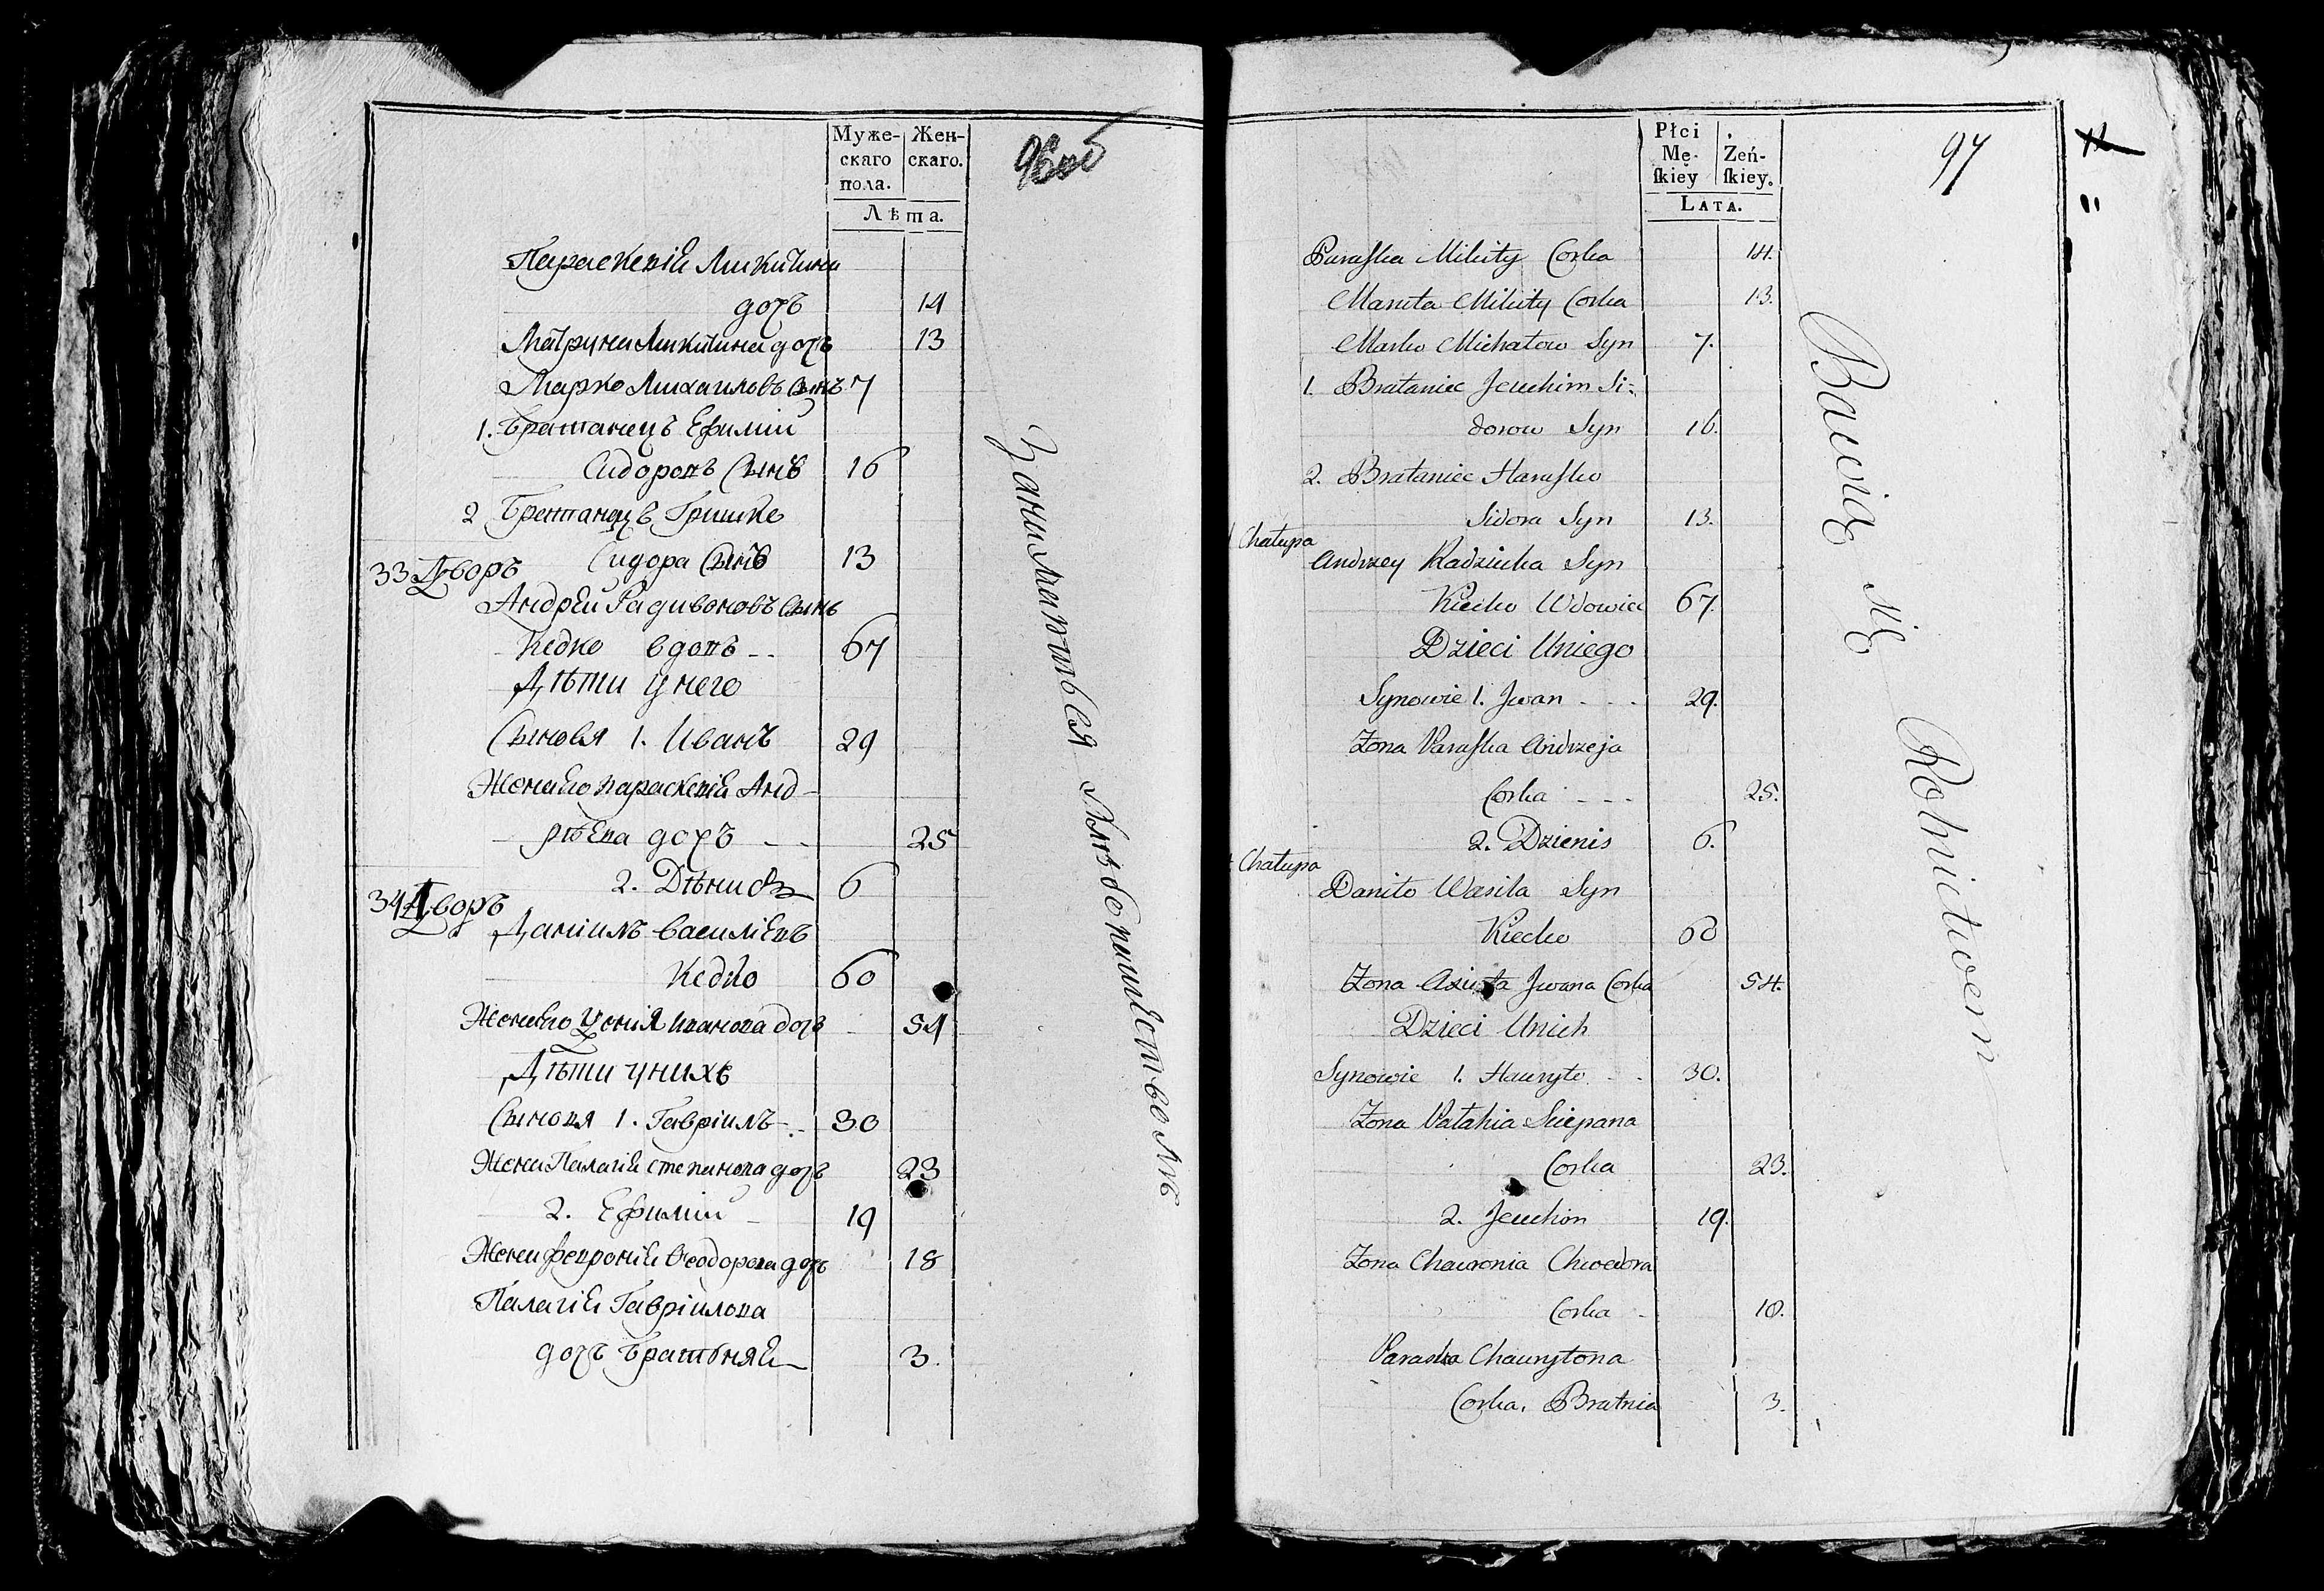 Муже-
скаго
пола.
Жен-
скаго.
Лѣта.
96 об
Параскевія Микитина
дочь 14
Матруна Микитина дочь 13
Марко Михаиловъ сынъ 7
1. Братанецъ Ефимій
Сидоровъ сынъ 16
2 Братанецъ Гришко
Сидора сынъ 13
33 Дворъ
Андрей Радивоновъ сынъ
Кедко вдовъ -- 67
Дѣти у него
Сыновья 1. Иванъ 29
Жена его Параскевія Анд-
рѣева дочь -- 25
2. Дѣнисъ 6
34 Дворъ
Даніилъ Василіевъ
Кедко 60
Жена его Ксенія Иванова дочь 54
Дѣти у нихъ
Сыновья 1. Гавріилъ -- 30
Жена Палагія Степанова дочь 23
2. Ефимій 19
Жена Февронія Ѳеодорова дочь 18
Палагія Гавріилова
дочь братьняя 3.
Занимается хлѣбопашествомъ
Płci
Mę-
ſkiey
Żeń-
ſkiey.
LATA.
97
11
Paraſka Mikity Corka 14.
Maruta Mikity Corka 13.
Marko Michałow Syn 7.
1. Brataniec Jeuchim Si-
dorow Syn 16.
2. Brataniec Haraſko
Sidora Syn 13.
Chałupa
Andrzey Radziuka Syn
Kiedko Wdowiec 67.
Dzieci Uniego
Synowie 1. Jwan - - - 29.
Żona Paraſka Andrzeja
Corka - - - 25.
2. Dzienis 6.
Chałupa
Daniło Wasila Syn
Kiedko 60
Żona Axiuta Jwana Corka 54.
Dzieci Unich
Synowie 1. Hauryło - - 30.
Żona Pałahia Sciepana
Corka 23.
2. Jeuchim 19.
Żona Chauronia Chwedora
Corka - 18.
Paraska Chauryłona
Corka. Bratnia 3.
Bawią się Rolnictwem